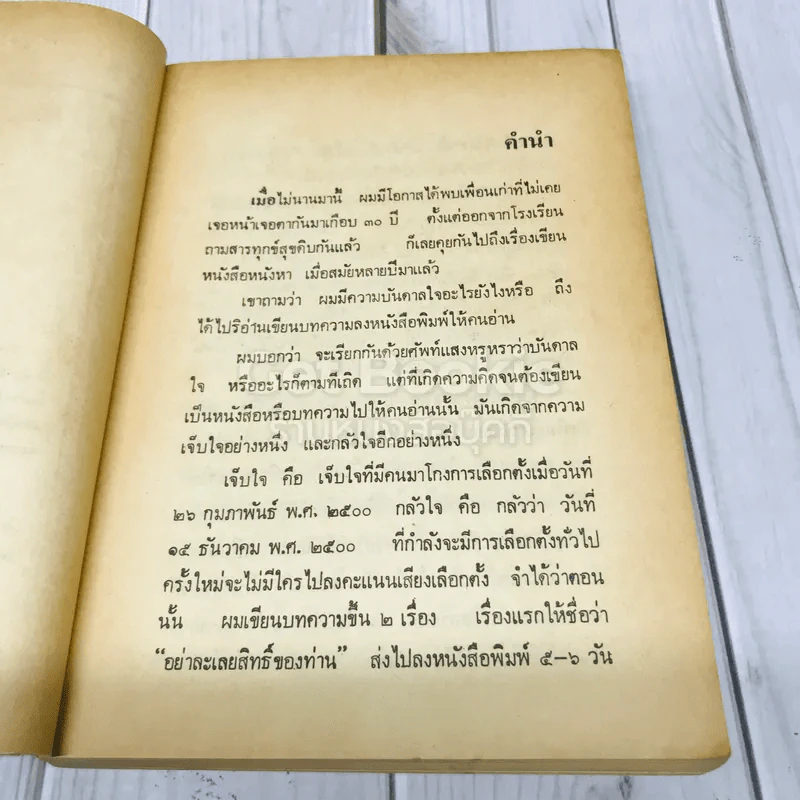 คำนำ
เมื่อไม่นานมานี้ ผมมีโอกาสได้พบเพื่อนเก่าที่ไม่เคย
เจอหน้าเจอตากันมาเกือบ ๓๐ ปี ตั้งแต่ออกจากโรงเรียน
ถามสารทุกข์สุขดิบกันแล้ว ก็เลยคุยกันไปถึงเรื่องเขียน
หนังสือหนังหา เมื่อสมัยหลายปีมาแล้ว
เขาถามว่า ผมมีความบันดาลใจอะไรยังไงหรือ ถึง
ได้ไปริอ่านเขียนบทความลงหนังสือพิมพ์ให้คนอ่าน
ผมบอกว่า จะเรียกกันด้วยศัพท์แสงหรูหราว่าบันดาล
ใจ หรืออะไรก็ตามทีเถิด แต่ที่เกิดความคิดจนต้องเขียน
เป็นหนังสือหรือบทความไปให้คนอ่านนั้น มันเกิดจากความ
เจ็บใจอย่างหนึ่ง และกลัวใจอีกอย่างหนึ่ง
เจ็บใจ คือ เจ็บใจที่มีคนมาโกงการเลือกตั้งเมื่อวันที่
๒๖ กุมภาพันธ์ พ.ศ. ๒๕๐๐ กลัวใจ คือ กลัวว่า วันที่
๑๕ ธันวาคม พ.ศ. ๒๕๐๐ ที่กำลังจะมีการเลือกตั้งทั่วไป
ครั้งใหม่จะไม่มีใครไปลงคะแนนเสียงเลือกตั้ง จำได้ว่าตอน
นั้น ผมเขียนบทความขึ้น ๒ เรื่อง เรื่องแรกให้ชื่อว่า
“อย่าละเลยสิทธิ์ของท่าน” ส่งไปลงหนังสือพิมพ์ ๕–๖ วัน